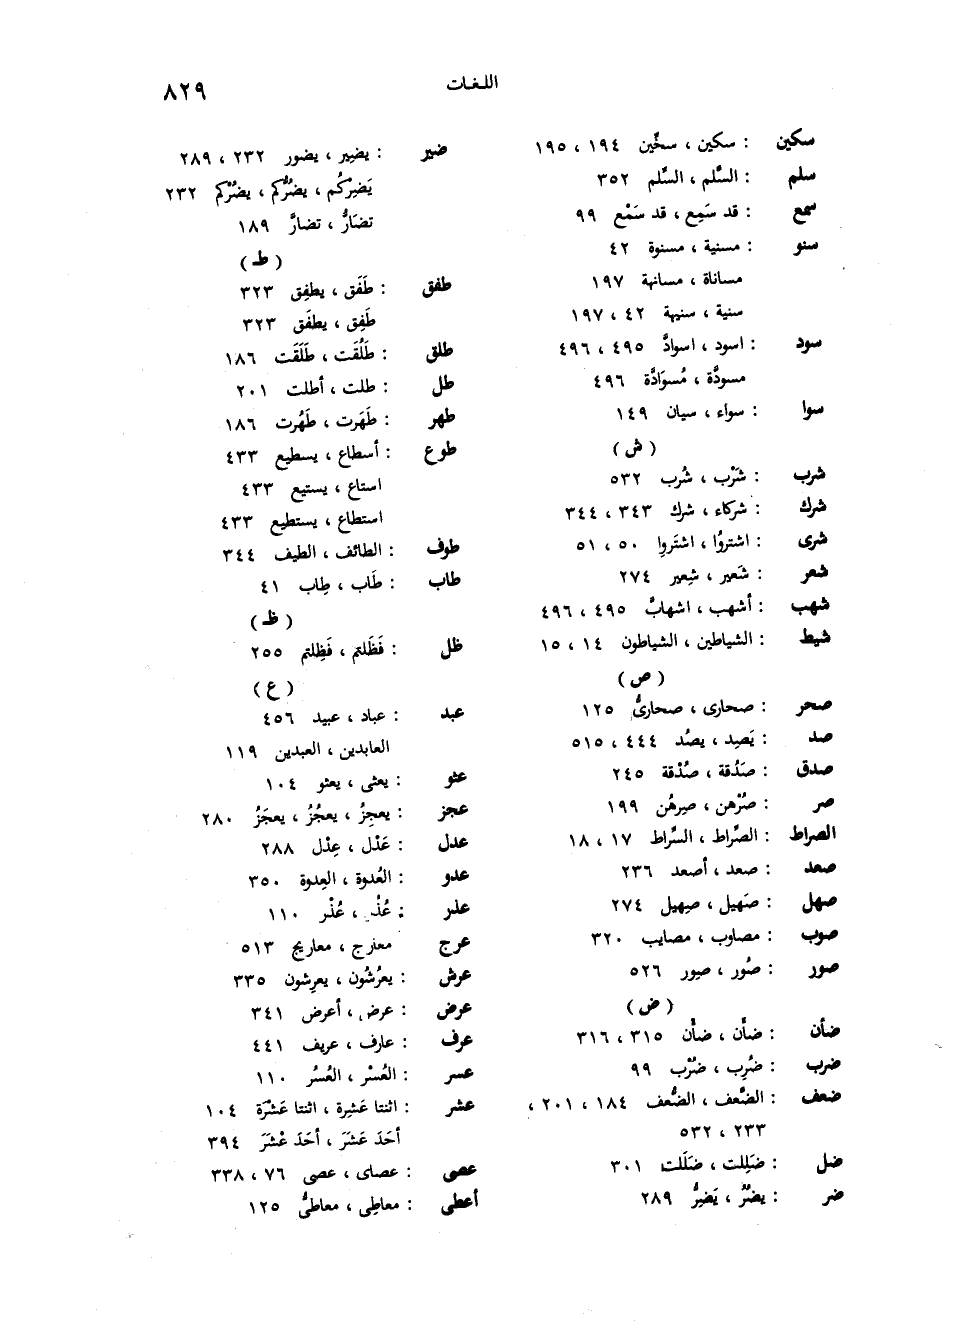 اللغات
٨٢٩
سكين : سكين ، سخّين ١٩٤ ، ١٩٥
سلم : السَّلم ، السِّلم ٣٥٢
سمع : قد سَمِع ، قد سَمْع ٩٩
سنو : مسنية ، مسنوة ٤٢
مساناة ، مسانهة ١٩٧
سنية ، سنيهة ٤٢ ، ١٩٧
سود : اسود ، اسوادَّ ٤٩٥ ، ٤٩٦
مسودَّة ، مُسوَادَّة ٤٩٦
سوا : سواء ، سيان ١٤٩
( ش )
شرب : شَرْب ، شُرب ٥٣٢
شرك : شركاء ، شرك ٣٤٣ ، ٣٤٤
شرى : اشتروُا ، اشتَروِا ٥٠ ، ٥١
شعر : شَعير ، شِعير ٢٧٤
شهب : أشهب ، اشهابَّ ٤٩٥ ، ٤٩٦
شيط : الشياطين ، الشياطون ١٤ ، ١٥
( ص )
صحر : صحارى ، صحارىُّ ١٢٥
صد : يَصِد ، يصُد ٤٤٤ ، ٥١٥
صدق : صَدُقة ، صُدْقة ٢٤٥
صر : صُرْهن ، صِرهُن ١٩٩
الصراط : الصِّراط ، السِّراط ١٧ ، ١٨
صعد : صعد ، أصعد ٢٣٦
صهل : صَهيل ، صِهيل ٢٧٤
صوب : مصاوب ، مصايب ٣٢٠
صور : صُور ، صور ٥٢٦
( ض )
ضأن : ضأن ، ضأن ٣١٥ ، ٣١٦
ضرب : ضُرِب ، ضُرْب ٩٩
ضعف : الضَّعف ، الضُّعف ١٨٤ ، ٢٠١ ،
٢٣٣ ، ٥٣٢
ضل : ضَلِلت ، ضَلَلت ٣٠١
ضر : يضرّ ، يَضِرُّ ٢٨٩
ضير : يضير ، يضور ٢٣٢ ، ٢٨٩
يَضِيرْكُم ، يضُرُّكم ، يضُرْكم ٢٣٢
تضَارُّ ، تضارَّ ١٨٩
( ط )
طفق : طَفَق ، يطفِق ٣٢٣
طَفِق ، يطفَق ٣٢٣
طلق : طَلُقَت ، طَلَقَت ١٨٦
طل : طلت ، أطلت ٢٠١
طهر : طَهَرت ، طَهُرت ١٨٦
طوع : أسطاع ، يسطيع ٤٣٣
استاع ، يستيع ٤٣٣
استطاع ، يستطيع ٤٣٣
طوف : الطائف ، الطيف ٣٤٤
طاب : طَاب ، طِاب ٤١
( ظ )
ظل : فَظَلتم ، فَظِلتم ٢٥٥
( ع )
عبد : عباد ، عبيد ٤٥٦
العابدين ، العبدين ١١٩
عثو : يعثى ، يعثو ١٠٤
عجز : يعجِزُ ، يعجُزُ ، يعجَزُ ٢٨٠
عدل : عَدْل ، عِدْل ٢٨٨
عدو : العُدوة ، العِدوة ٣٥٠
عذر : عُذُر ، عُذْر ١١٠
عرج معارج ، معاريج ٥١٣
عرش : يعرُشُون ، يعرِشون ٣٣٥
عرض : عرض ، أعرض ٣٤١
عرف : عارف ، عريف ٤٤١
عسر : العُسْر ، العُسُر ١١٠
عشر : اثنتا عَشِرة ، اثنتا عَشْرَة ١٠٤
أحَدَ عَشَرَ ، أحَدَ عْشَرَ ٣٩٤
عصى : عصاى ، عصى ٧٦ ، ٣٣٨
أعطى : معاطِى ، معاطىُّ ١٢٥